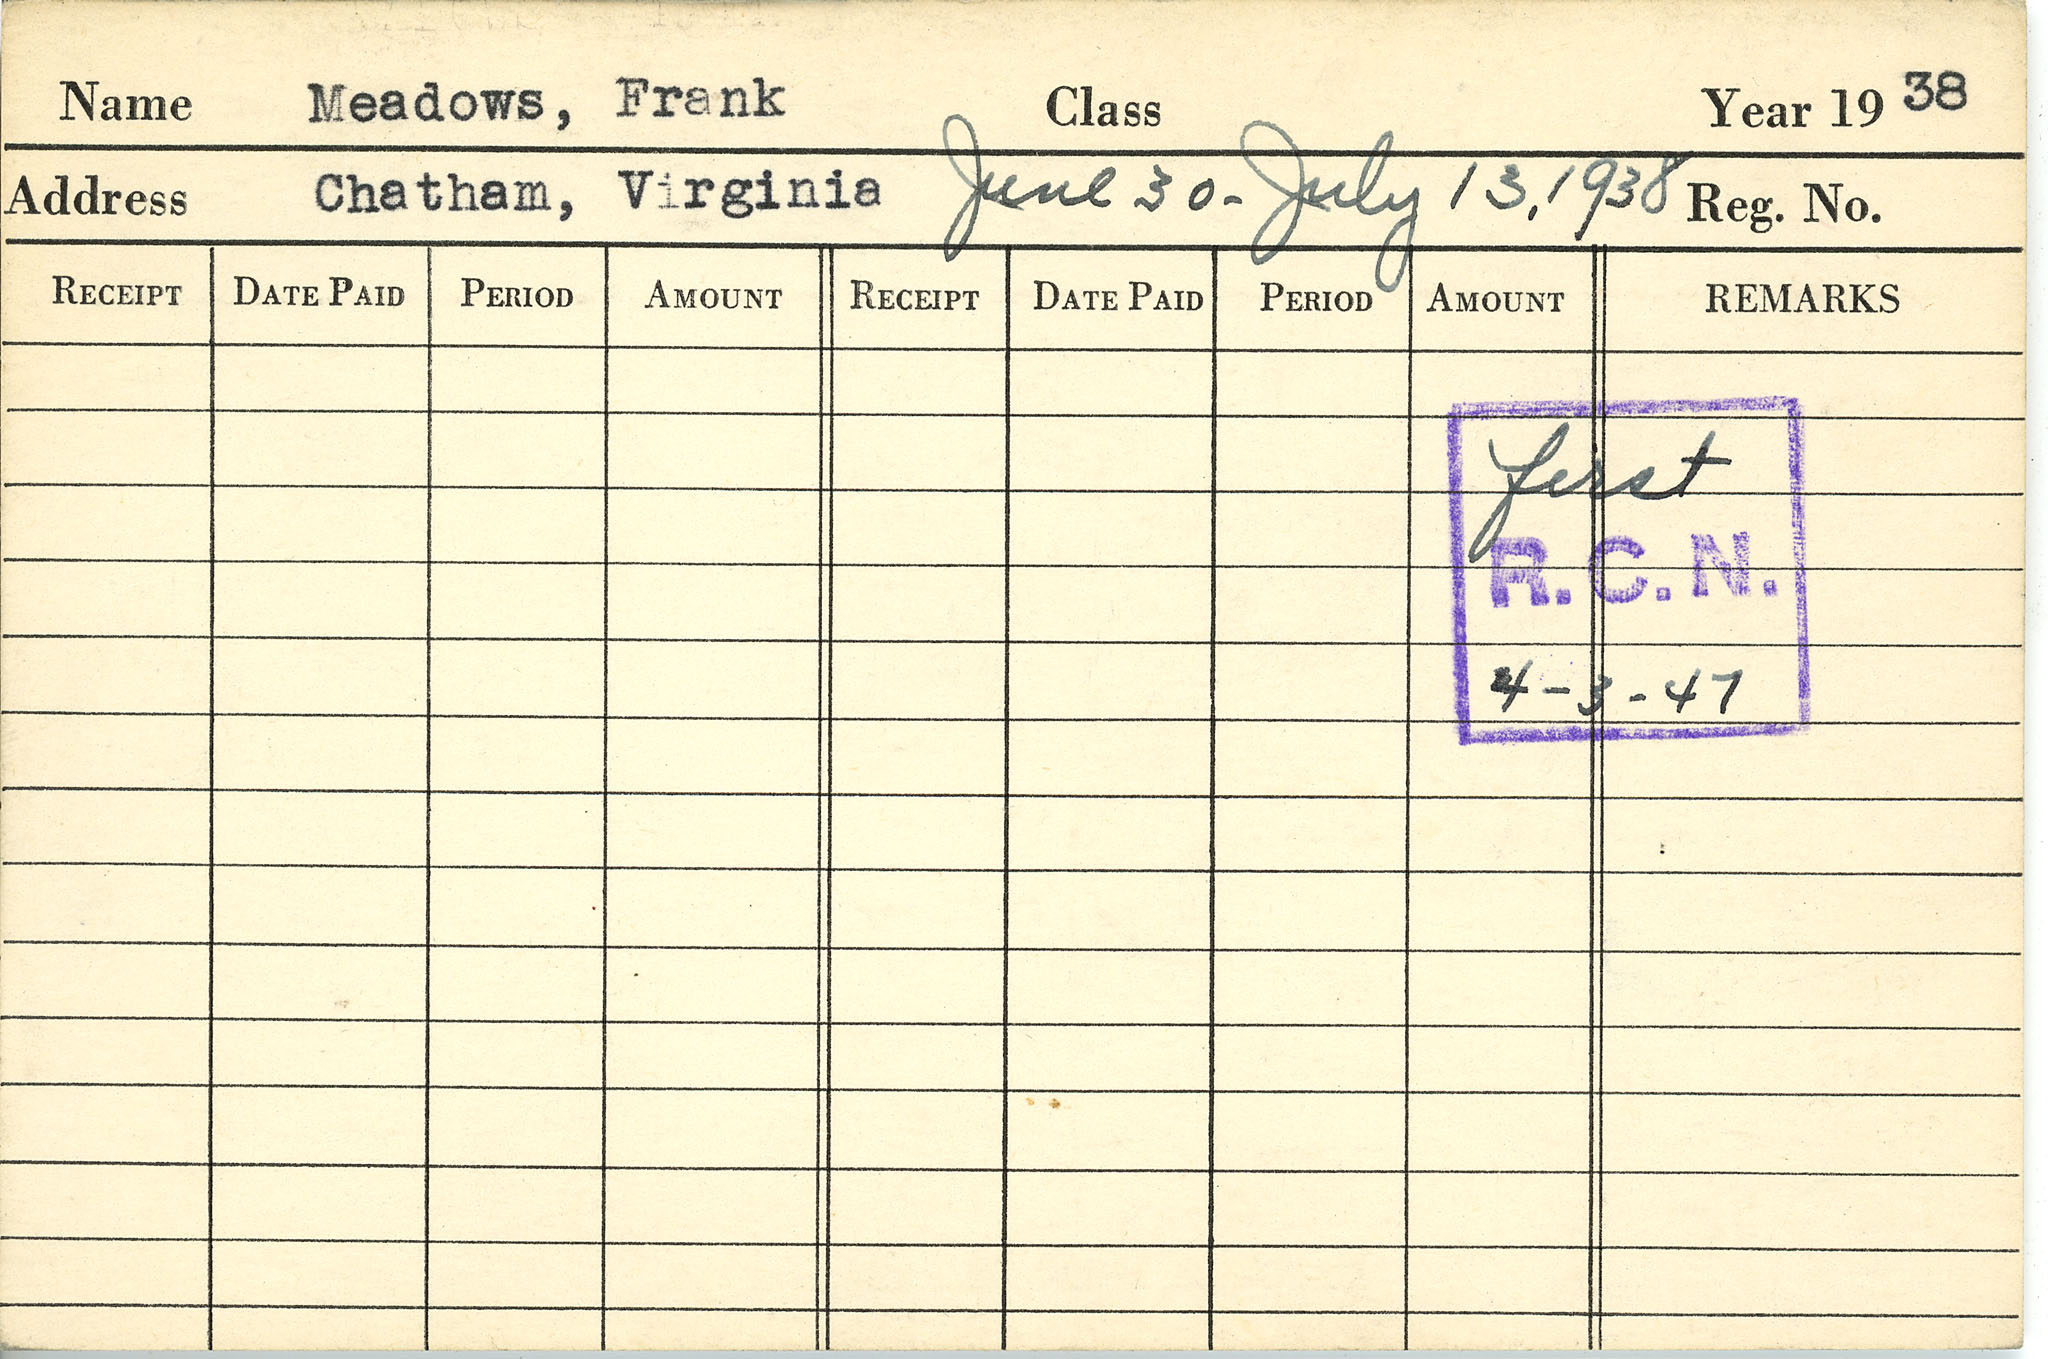 Name Meadows, Frank Class Year 19 38
Address Chatham, Virginia June 30 - July 13, 1938 Reg. No.
RECEIPT DATE PAID PERIOD AMOUNT RECEIPT DATE PAID PERIOD AMOUNT REMARKS
first
R.C.N.
4-3-47